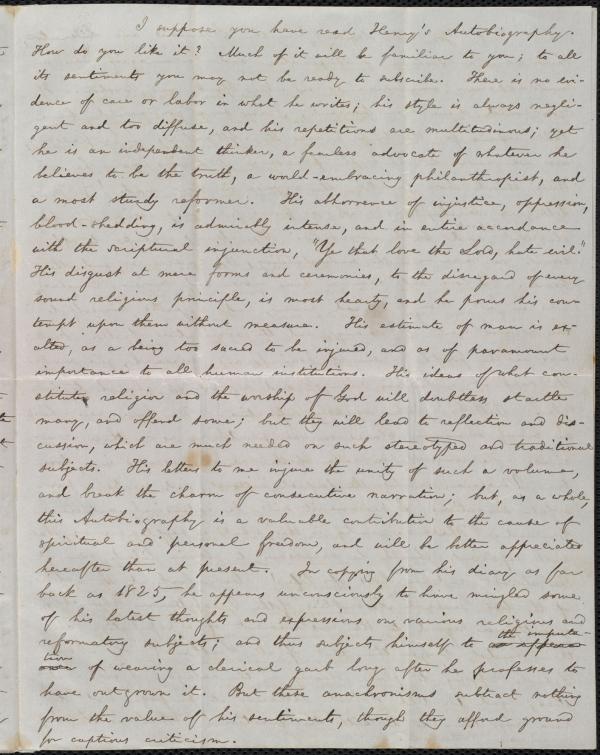 I suppose you have read Henry's Autobiography.
How do you like it? Much of it will be familiar to you; to all
its sentiments you may not be ready to subscribe. There is no evi-
dence of care or labor in what he writes; his style is always negli-
gent and too diffuse, and his repetitions are multitudinous; yet
he is an independent thinker, a fearless advocate of whatever he
believes to be the truth, a world-embracing philanthropist, and
a most sturdy reformer. His abhorrence of injustice, oppression,
blood-shedding, is admirably intense, and in entire accordance
with the scriptural injunction, "Ye that love the Lord, hate evil."
His disgust at mere forms and ceremonies, to the disregard of every
sound religious principle, is most hearty, and he pours his con-
tempt upon them without measure. His estimate of man is ex-
alted, as a being too sacred to be injured, and as of paramount
importance to all human institutions. His ideas of what con-
stitute religion and the worship of God will doubtless startle
many, and offend some; but they will lead to reflection and dis-
cussion, which are much needed on such stereotyped and traditional
subjects. His letters to me injure the unity of such a volume,
and break the charm of consecutive narration; but, as a whole,
this Autobiography is a valuable contribution to the cause of
spiritual and personal freedom, and will be better appreciated
hereafter than at present. In copying from his diary as far
back as 1825, he appears unconsciously to have mingled some
of his latest thoughts and expressions on various religious and
reformatory subjects; and thus subjects himself to the imputa-
tion of wearing a clerical garb long after he professes to
have outgrown it. But these anachronisms subtract nothing
from the value of his sentiments, though they afford ground
for captious criticism.